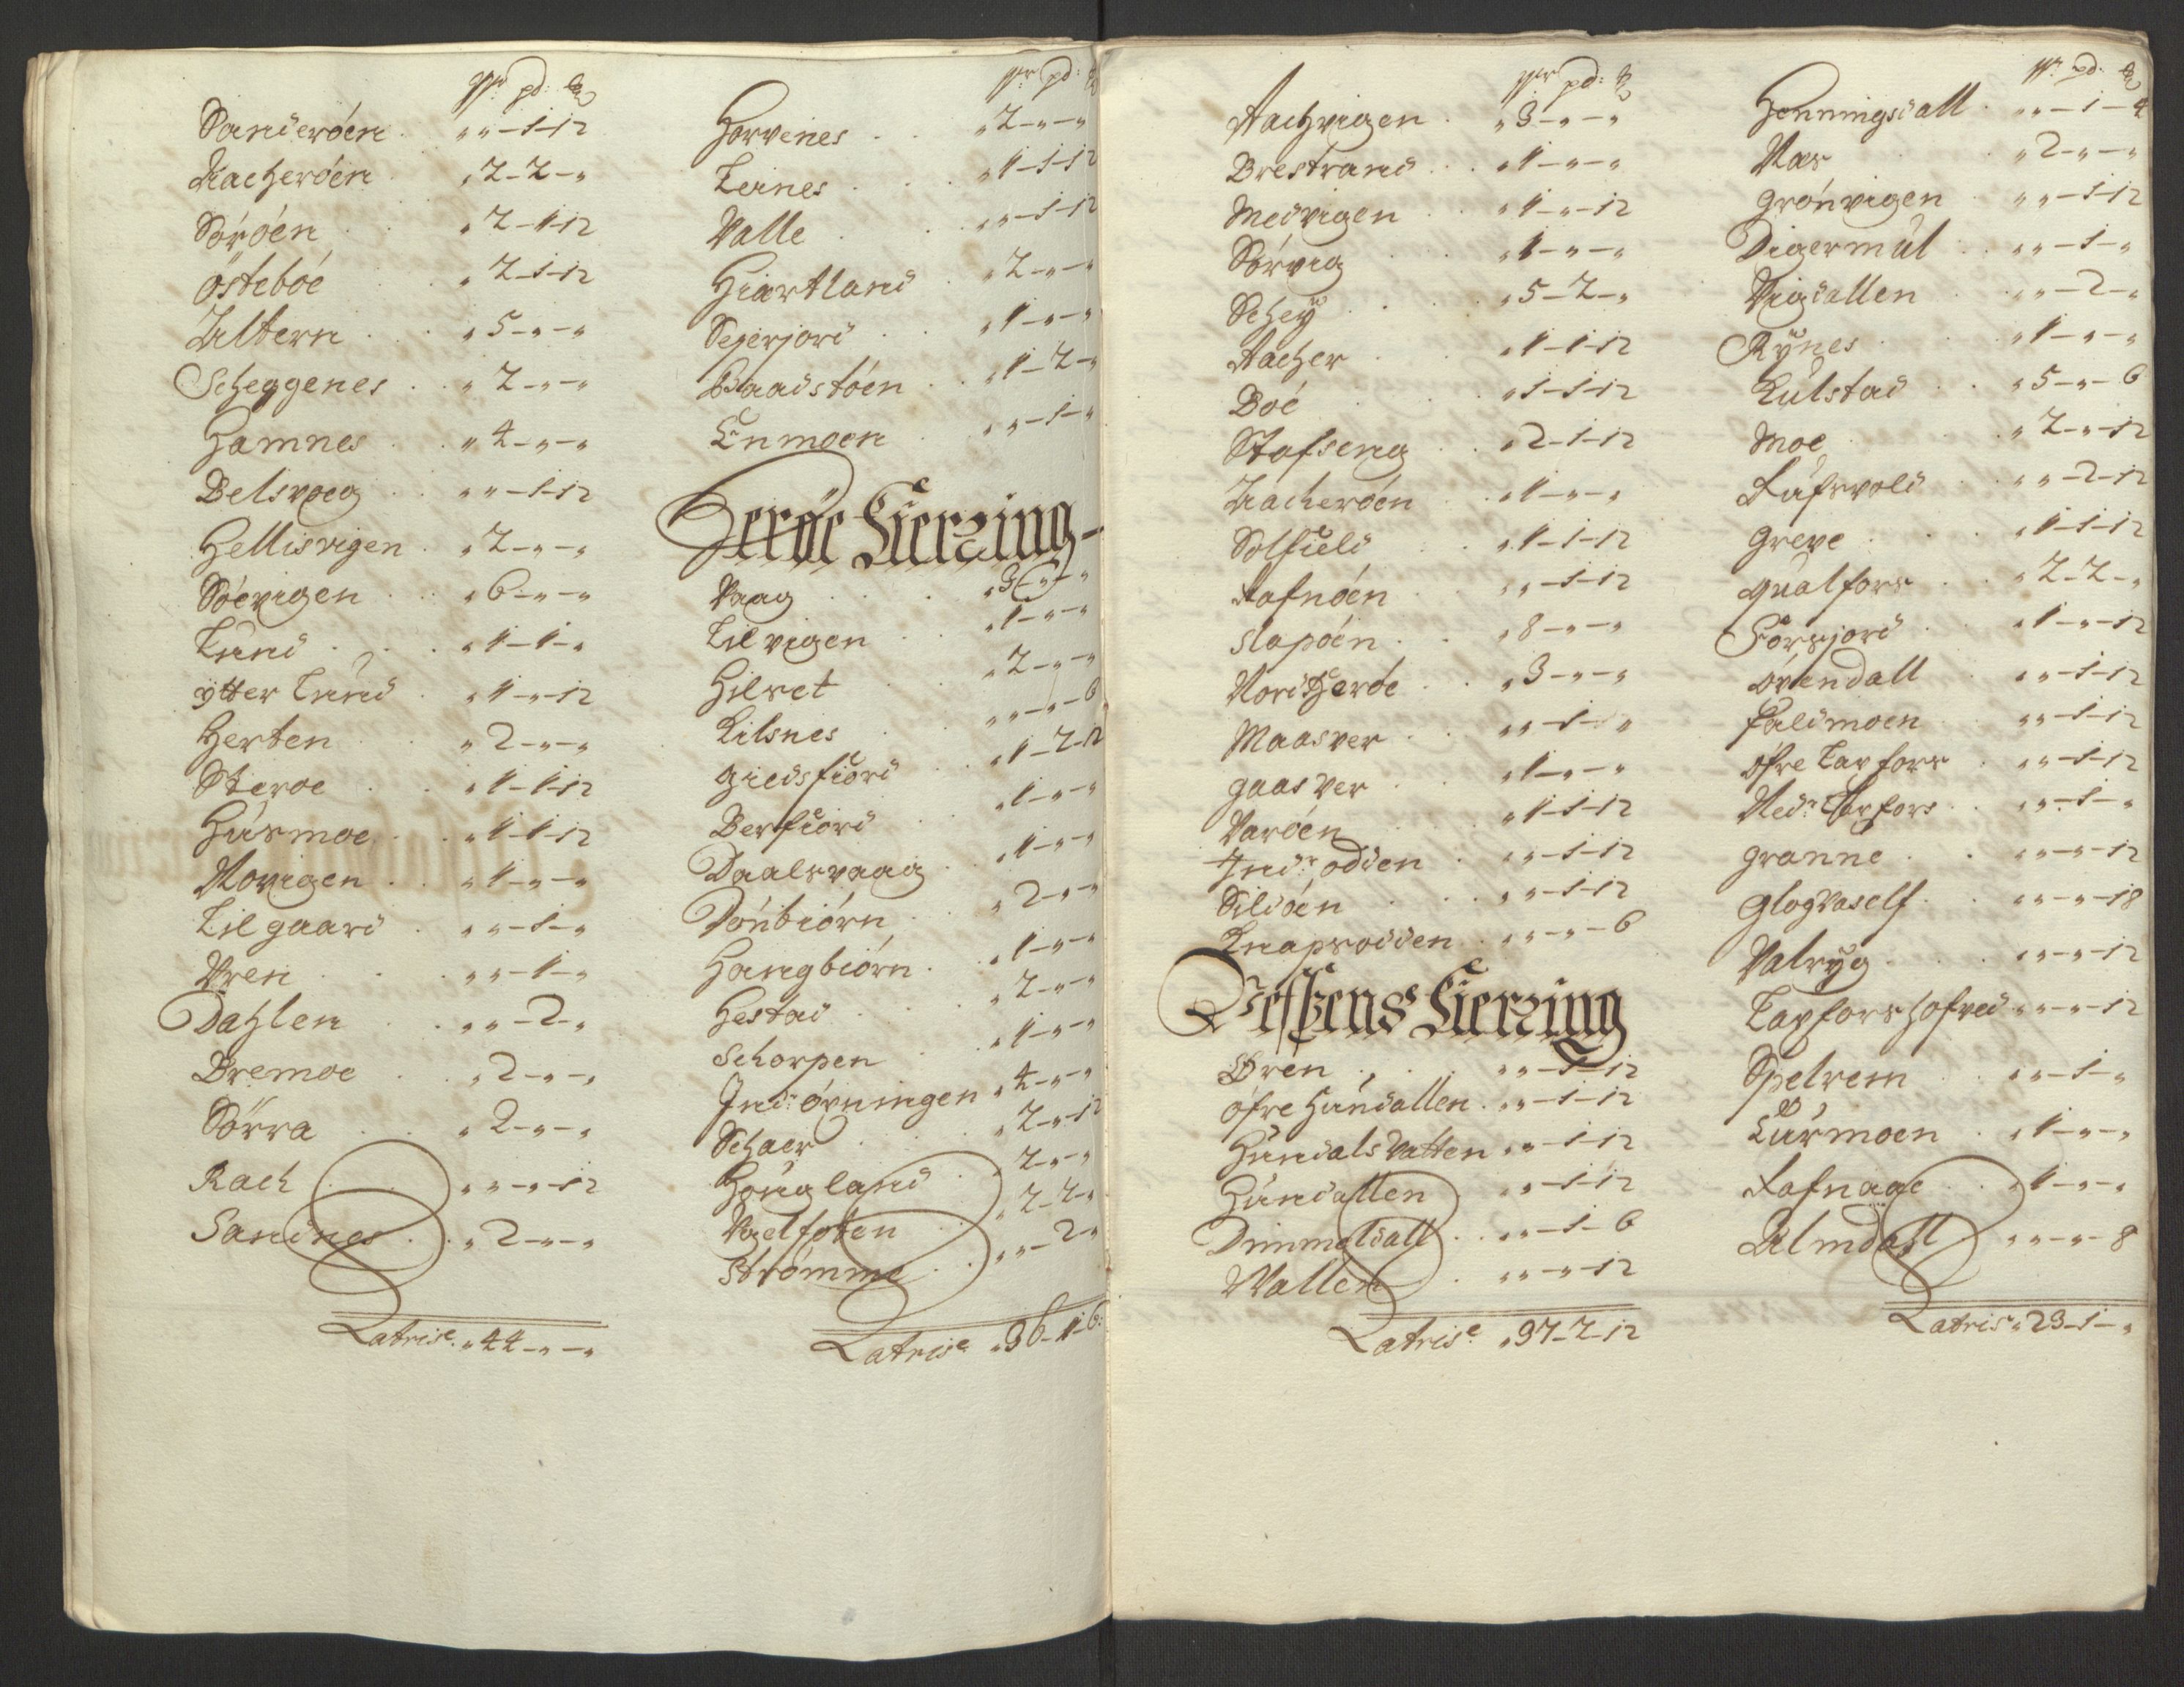 Vr pd: ℔
Sanderöen . „ „-1-12
Aacheröen . „ 2-2-„
Söröen . „ 2-1-12
Östeböe . „ 2-1-12
Ultern . „ 5-„-„
Scheggenes . „ 2-„-„
Hamnes . „ 4-„-„
Belsvog . „ „-1-12
Hellisvigen . „ 2-„-„
Söevigen . „ 6-„-„
Lund . „ 1-1-„
ytter Lund . „ 1-„-12
Herten . „ 2-„-„
Steroe . „ 1-1-12
Husmoe . „ 1-1-12
Novigen . „ 1-„-„
Lilgaard . „ „-1-„
Vren . „ „-1-„
Dahlen . „ „-2-„
Bremoe . „ 2-„-„
Sörra . „ 2-„-„
Rach . „ „-„-12
Sandnes . „ 2-„-„
Latrise „ 44-„-„
Vr pd: ℔
Horvenes . „ 2-„-„
Leines . „ 1-1-12
Valle . „ „-1-12
Hiartland . „ 2-„-„
Sejerjord . „ 1-„-„
Baadstöen . „ 1-2-„
Enmoen . „ „-1-„
Heröe Fierding
Vaag . „ 3-„-„
Lilvigen . „ 1-„-„
Hilret . „ 2-„-„
Kilsnes . „ „-„-6
Giedsfiord . „ 1-2-12
Berfiord . „ 1-„-„
Daalsvaag . „ 1-„-„
Dönbiörn . „ 2-„-„
Hangbiörn . „ 1-„-„
Hestad . „ 2-„-„
Schorpen . „ 1-„-„
Indr örningen „ 4-„-„
Schaer . „ 2-„-12
Hougland . „ 2-„-„
Vaelfoten . „ 2-2-„
Strömme . „ „-2-„
Latrise „ 36-1-6
Vr pd: ℔
Aachvigen . „ 3-„-„
Brestrand . „ 1-„-„
Medvigen . „ 1-„-12
Sörvig . „ 1-„-„
Schey . „ 5-2-„
Aacher . „ 1-1-12
Böe . „ 1-1-12
Stafseng . „ 2-1-12
Aacheröen . „ 1-„-„
Solfield . „ 1-1-12
Rafnöen . „ „-1-12
Slapöen . „ 8-„-„
Nordheröe . „ 3-„-„
Maasver . „ „-1-„
Gaasver . „ 1-„-„
Varöen . „ 1-1-12
Indr odden . „ „-1-12
Sildöen . „ „-1-12
Knapsodden . „ „-„-6
Vefsens Fierding
Ören . „ „-1-12
öfre Hundallen . „ „-1-12
Hundals Vatten „ „-1-12
Hundallen „ „-1-12
Dimmeldall . „ „-1-6
Vallen . „ „-„-12
Latrise „ 37-2-12
Vr pd: ℔
Henningsdall . „ „-1-4
Næs „ 2-„-„
Grönvigen . „ „-1-12
Digermul . „ „-1-„
Vigdallen . „ „-2-„
Rÿnes . „ 1-„-„
Kulstad . „ 5-„-6
Moe . „ 2-„-12
Lufsvold . „ „-2-12
Greve . „ 1-1-12
Qualfors . „ 2-2-„
Forsjord . „ 1-„-12
Övendall . „ „-1-12
Faldmoen . „ „-1-12
öfre Laxfors . „ „-1-12
Nedr Laxfors . „ „-1-„
Granne . „ „-„-12
Glogvaself . „ „-„-18
Valryg . „ „-„-12
Laxfors hofved „ „-„-12
Spelrem . „ „-1-„
Lurmoen . „ 1-„-„
Rafnaae . „ 1-„-„
Almdall . „ „-„-8
Latris „ 23-1-„